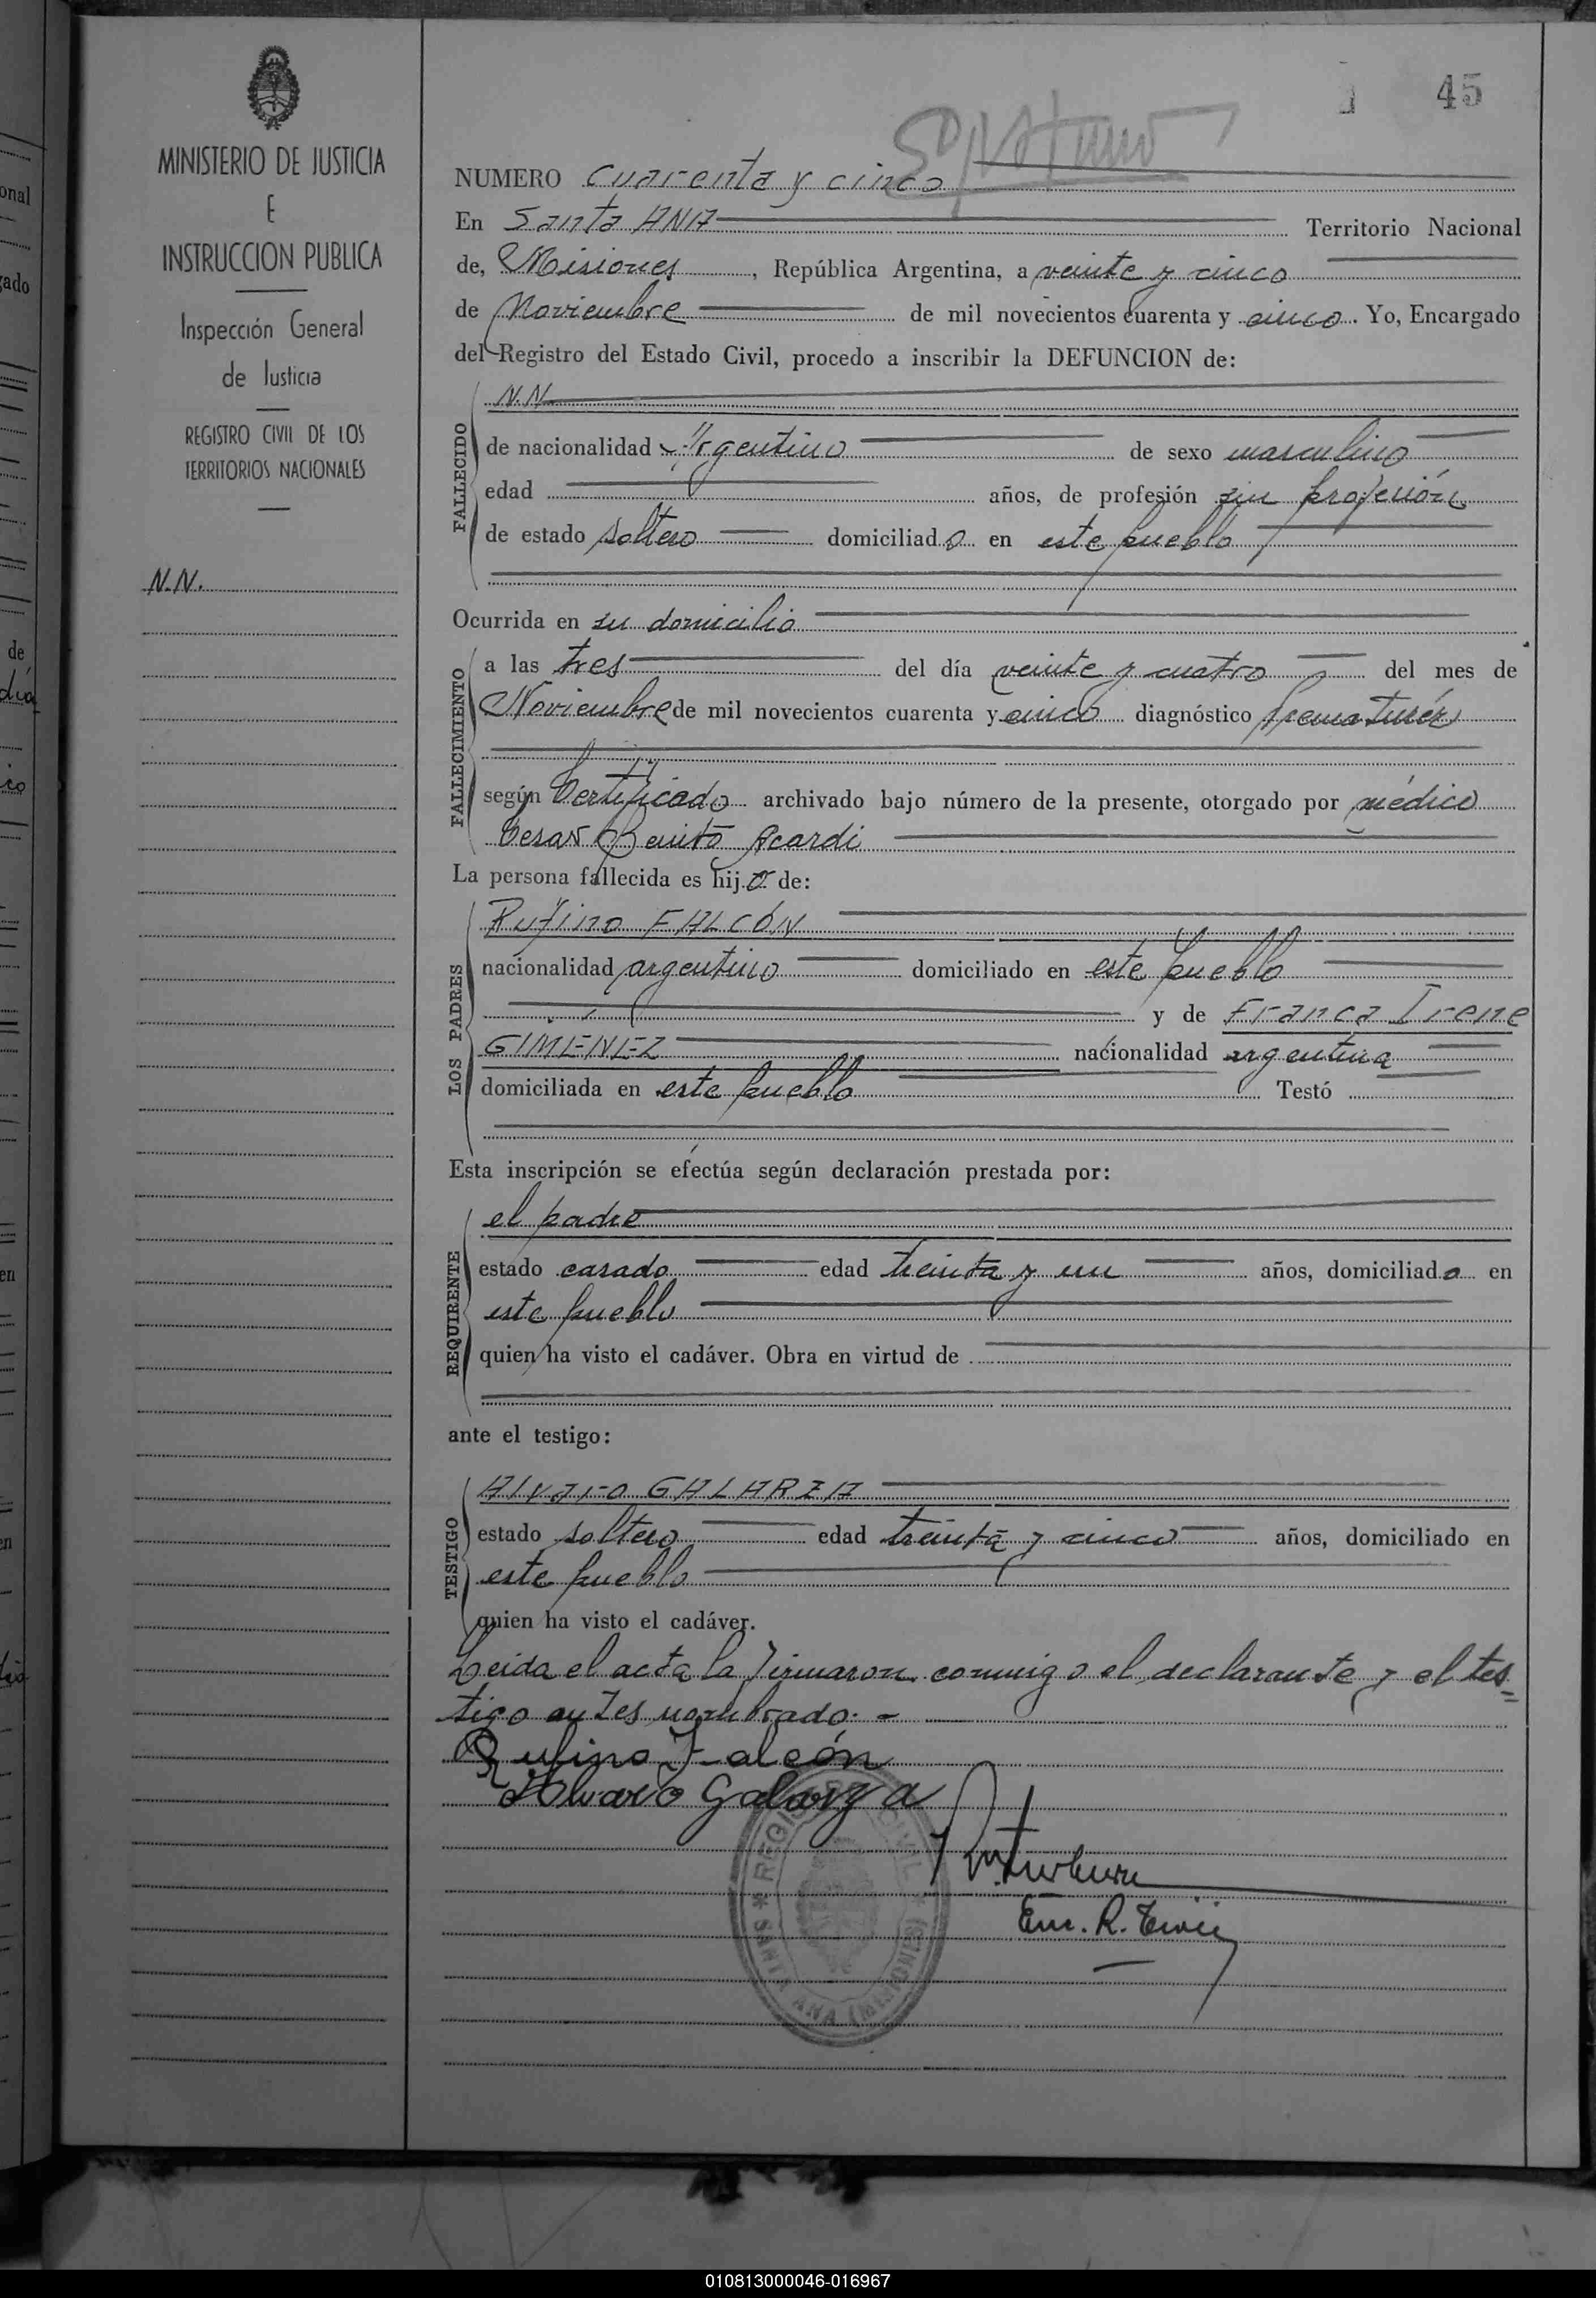 45
MINISTERIO DE JUSTICIA
E
INSTRUCCION PUBLICA
Inspección General
de Justicia
REGISTRO CIVIL DE LOS
TERRITORIOS NACIONALES
N.N.
NUMERO cuarenta y cinco
En Santa ANA Territorio Nacional
de, Misiones, República Argentina, a veinte y cinco
de Noviembre de mil novecientos cuarenta y cinco. Yo, Encargado
del Registro del Estado Civil, procedo a inscribir la DEFUNCION de:
FALLECIDO
N.N.
de nacionalidad Argentino de sexo masculino
edad años, de profesión sin profesión
de estado soltero domiciliado en este pueblo
Ocurrida en su domicilio
FALLECIMIENTO
a las tres del día veinte y cuatro del mes de
Noviembre de mil novecientos cuarenta y cinco diagnóstico prematuréz
según Certificado archivado bajo número de la presente, otorgado por médico
Cesar Benito Acardi
La persona fallecida es hijo de:
LOS PADRES
Rufino FALCÓN
nacionalidad argentino domiciliado en este pueblo
y de Franca Irene
GIMÉNEZ nacionalidad argentina
domiciliada en este pueblo Testó
Esta inscripción se efectúa según declaración prestada por:
REQUIRENTE
el padre
estado casado edad treinta y un años, domiciliado en
este pueblo
quien ha visto el cadáver. Obra en virtud de
ante el testigo:
TESTIGO
Alvaro GALARZA
estado soltero edad treinta y cinco años, domiciliado en
este pueblo
quien ha visto el cadáver.
Leida el acta la firmaron conmigo el declarante y el tes=
tigo antes nombrado.-
Rufino Falcón
Alvaro Galarza
REGISTRO CIVIL
SANTA ANA (MISIONES)
Enc. R. Civil
010813000046-016967